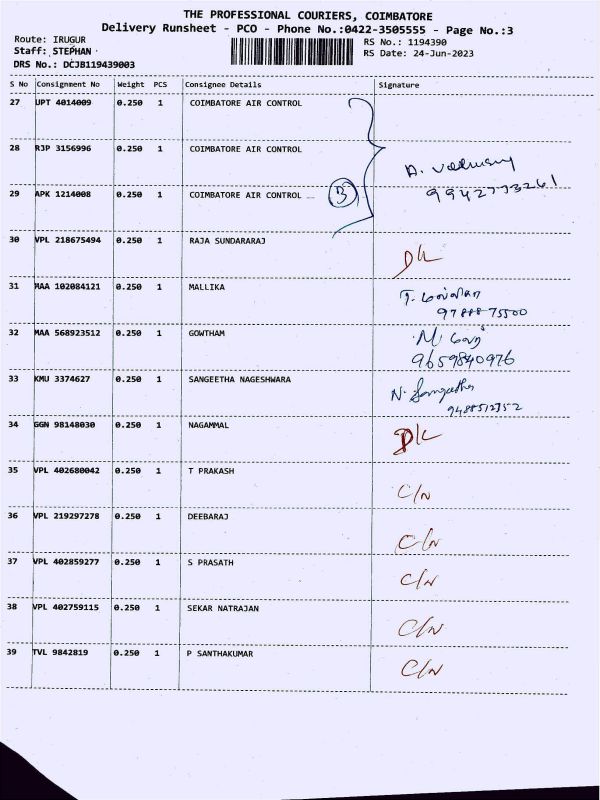 THE PROFESSIONAL COURIERS, COIMBATORE
Delivery Runsheet - PCO - Phone No.:0422-3505555 - Page No.:3
Route: IRUGUR
Staff: STEPHAN
DRS No.: DCJB119439003
RS No.: 1194390
RS Date: 24-Jun-2023
S No Consignment No Weight PCS Consignee Details Signature
27 UPT 4014009 0.250 1 COIMBATORE AIR CONTROL
28 RJP 3156996 0.250 1 COIMBATORE AIR CONTROL
A.
29 APK 1214008 0.250 1 COIMBATORE AIR CONTROL 3 9942773261
30 VPL 218675494 0.250 1 RAJA SUNDARARAJ D/L
31 MAA 102084121 0.250 1 MALLIKA T.
9788875500
32 MAA 568923512 0.250 1 GOWTHAM M.
9659840976
33 KMU 3374627 0.250 1 SANGEETHA NAGESHWARA N. Sangeetha
9488512352
34 GGN 98148030 0.250 1 NAGAMMAL D/L
35 VPL 402680042 0.250 1 T PRAKASH C/N
36 VPL 219297278 0.250 1 DEEBARAJ C/N
37 VPL 402859277 0.250 1 S PRASATH C/N
38 VPL 402759115 0.250 1 SEKAR NATRAJAN C/N
39 TVL 9842819 0.250 1 P SANTHAKUMAR C/N